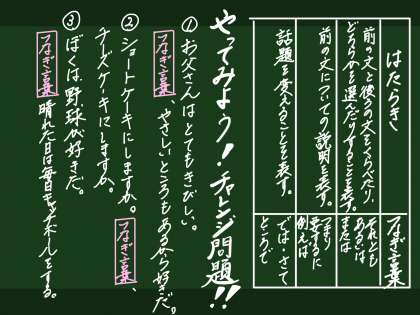 はたらき
つなぎ言葉
前の文と後の文をくらべたり、
どちらかを選んだりすることを表す。
それとも
あるいは
または
前の文についての説明を表す。
つまり
要するに
例えば
話題を変えることを表す。
では・さて
ところで
やってみよう！チャレンジ問題!!
①お父さんはとてもきびしい。
つなぎ言葉、やさしいところもあるから好きだ。
②ショートケーキにしますか。つなぎ言葉、
チーズケーキにしますか。
③ぼくは野球が好きだ。
つなぎ言葉晴れた日は毎日キャッチボールをする。